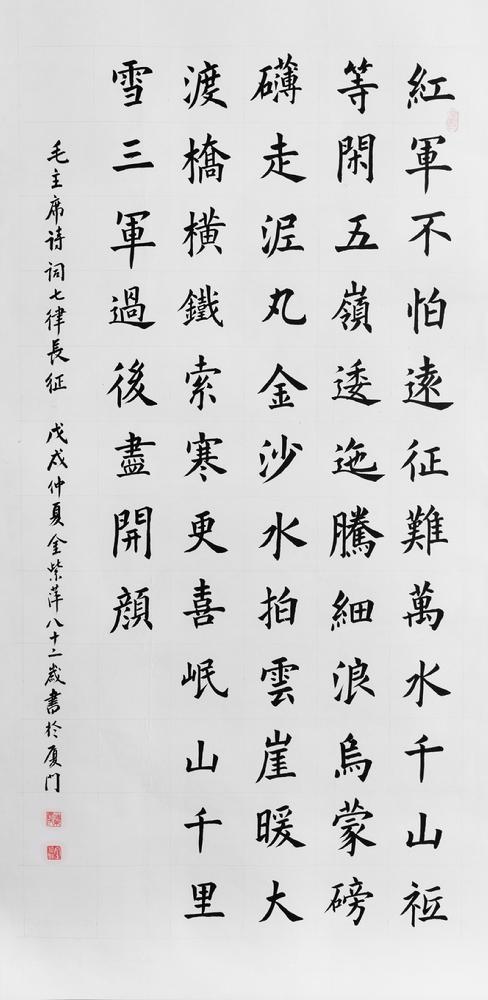 紅軍不怕遠征難萬水千山祗
等閑五嶺逶迤騰細浪烏蒙磅
礴走泥丸金沙水拍雲崖暖大
渡橋橫鐵索寒更喜岷山千里
雪三軍過後盡開顔
毛主席诗词七律長征 戊戌仲夏金紫萍八十二歲書於厦门